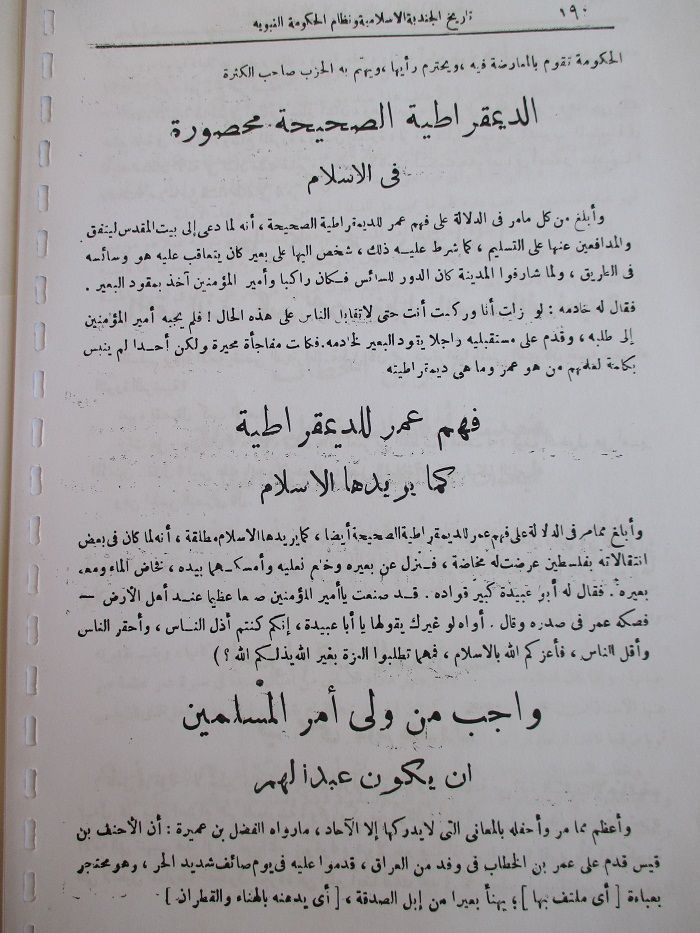 ١٩٠
تاريخ الجندية الاسلامية ونظام الحكومة النبويه
الحكومة تقوم بالمعارضة فيه ، ويحترم رأيها ، ويهتم به الحزب صاحب الكثرة
الديمقراطية الصحيحة محصورة
فى الاسلام
وأبلغ من كل مامر فى الدلالة على فهم عمر للديمقراطية الصحيحة ، أنه لما دعى إلى بيت المقدس ليتفق
والمدافعين عنها على التسليم ، كما شرط عليه ذلك ، شخص اليها على بعير كان يتعاقب عليه هو وسائسه
فى الطريق ، ولما شارفوا المدينة كان الدور للسائس فكان راكبا وأمير المؤمنين آخذ بمقود البعير .
فقال له خادمه : لو نزلت أنا وركبت أنت حتى لاتقابل الناس على هذه الحال ! فلم يجبه أمير المؤمنين
إلى طلبه ، وقدم على مستقبليه راجلا يقود البعير لخادمه . فكانت مفاجأة محيرة ولكن أحدا لم ينبس
بكلمة لعلمهم من هو عمر وما هى ديمقراطيته
فهم عمر للديمقراطية
كما يريدها الاسلام
وأبلغ ممامر فى الدلالة على فهم عمر للديمقراطية الصحيحة أيضا ، كما يريدها الاسلام مطلقة ، أنه لما كان فى بعض
انتقالاته بفلسطين عرضت له مخاضة ، فنزل عن بعيره وخلع نعليه وأمسكهما بيده ، نخاض الماء ومعه
بعيره . فقال له أبو عبيدة كبير قواده . قد صنعت ياأمير المؤمنين صنعا عظيما عند أهل الأرض —
فصكه عمر فى صدره وقال . أواه لو غيرك يقولها يا أبا عبيدة ، إنكم كنتم أذل الناس ، وأحقر الناس
وأقل الناس ، فأعزكم الله بالاسلام ، فمهما تطلبوا العزة بغير الله يذلكم الله ؟ )
واجب من ولى أمر المسلمين
ان يكون عبدا لهم
وأعظم مما مر وأحفله بالمعانى التى لايدركها إلا الآحاد ، مارواه الفضل بن عميرة : أن الأحنف بن
قيس قدم على عمر بن الخطاب فى وفد من العراق ، قدموا عليه فى يوم صائف شديد الحر ، وهو محتجر
بعباءة [ أى ملتف بها ] ؛ يهنأ بعيرا من إبل الصدقة ، [ أى يدهنه بالهناء والقطران ]